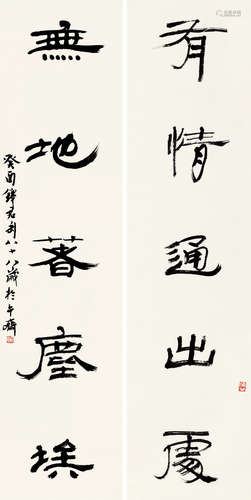 有情通出處
無地著塵埃
癸酉錢君匋八十八歲於午齋